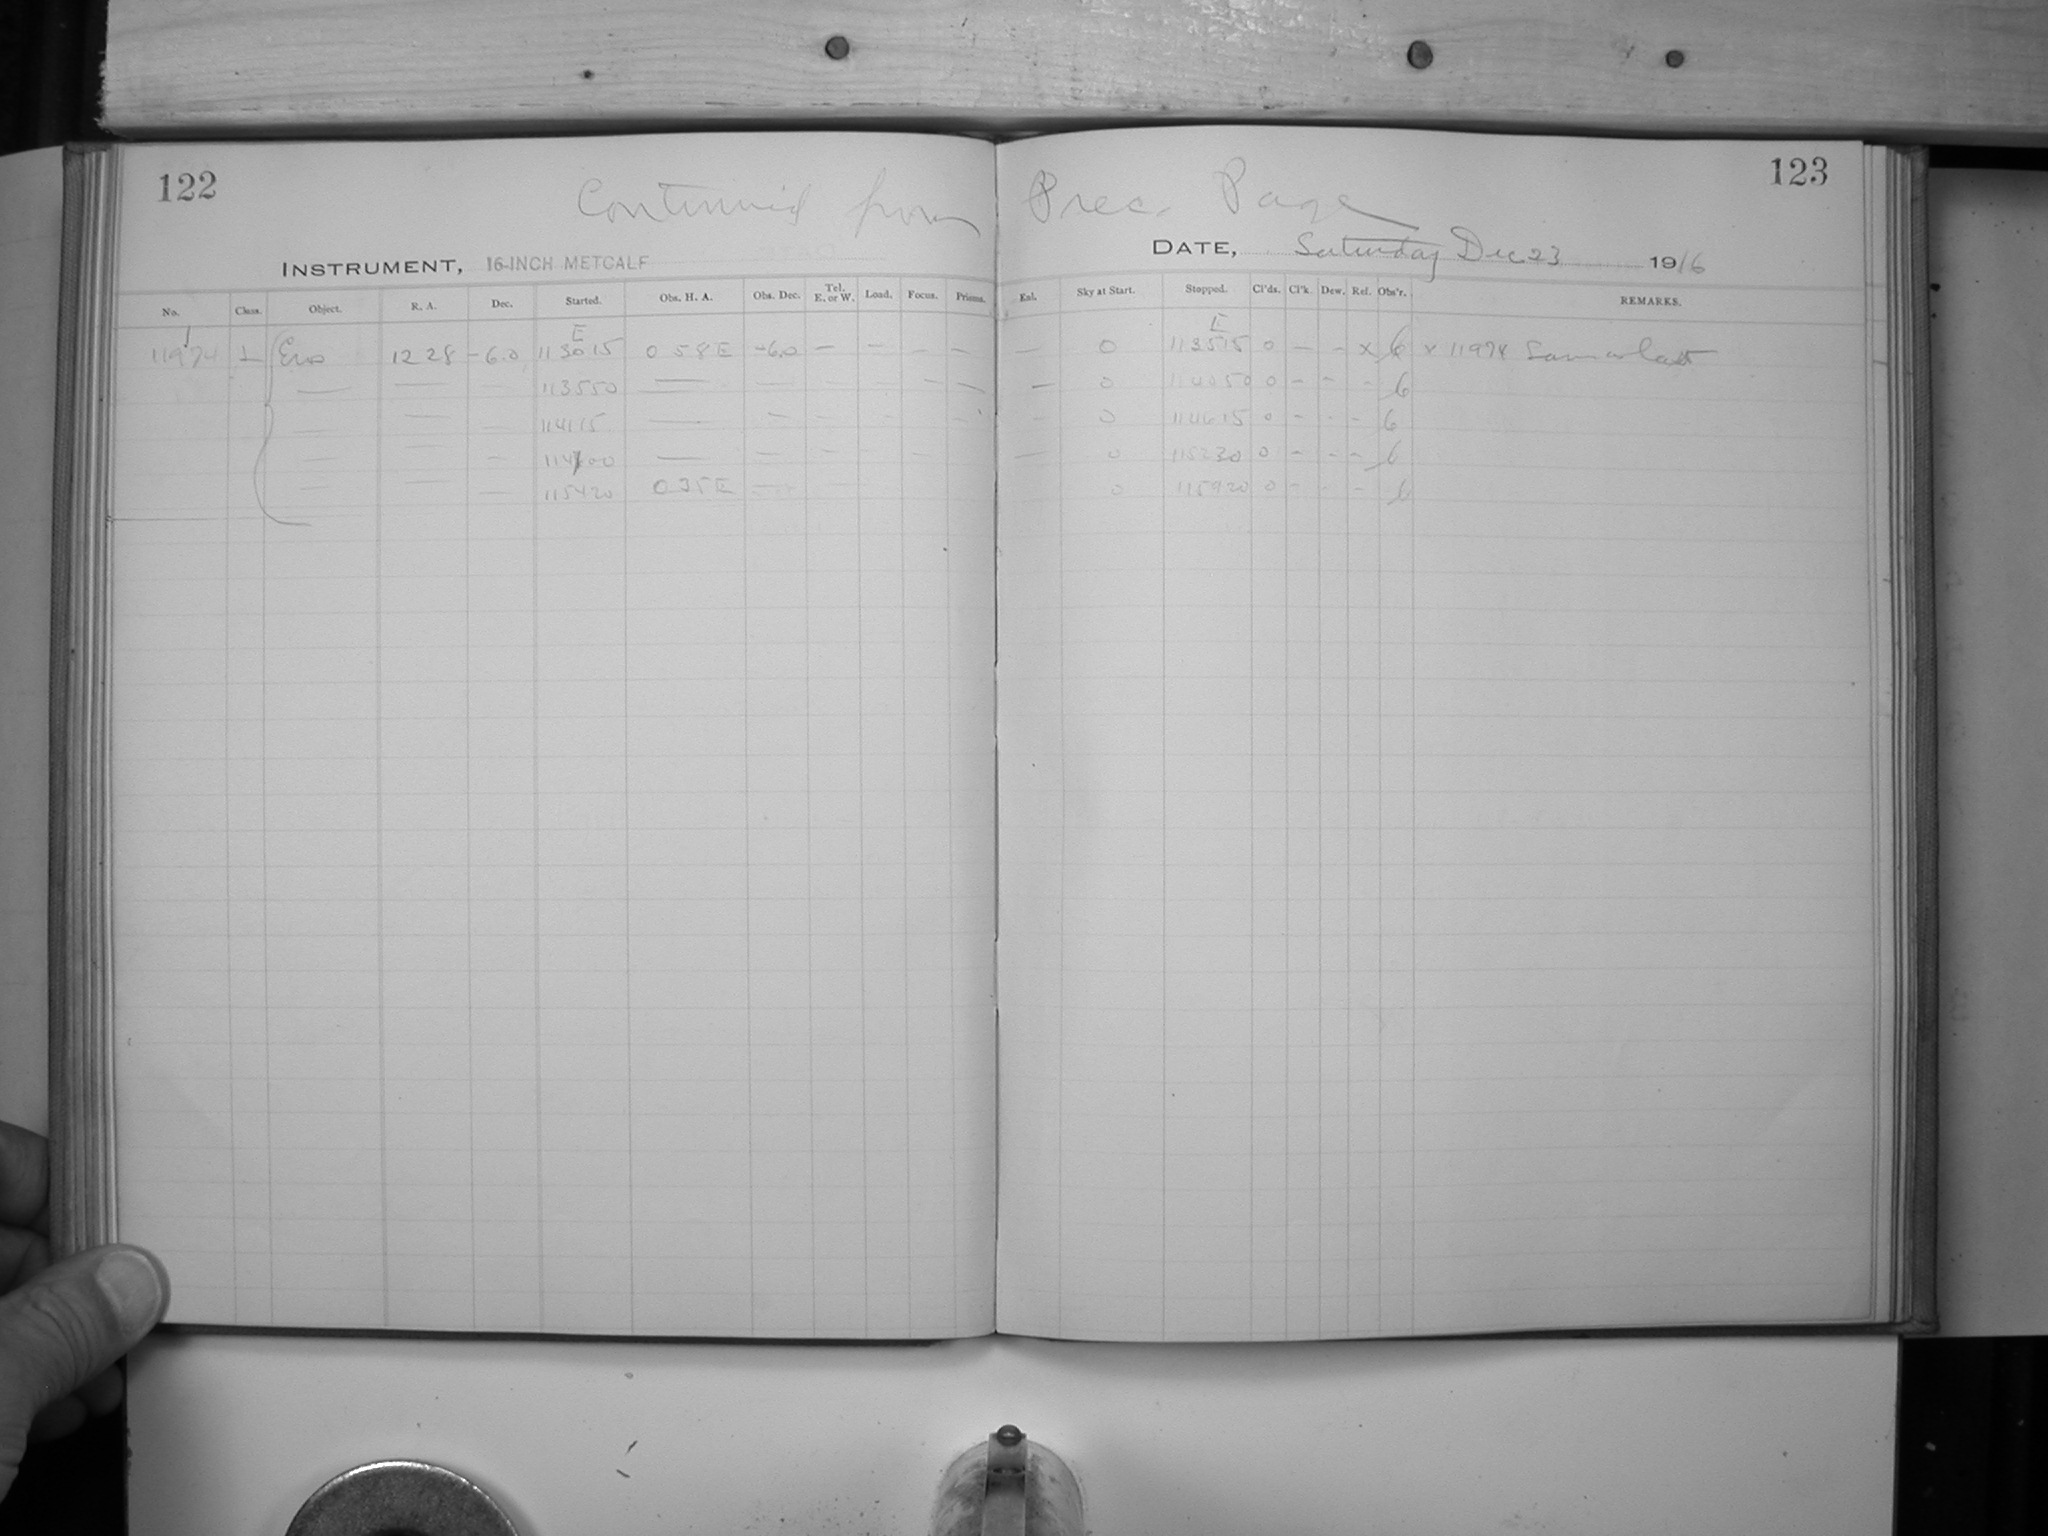 122 123
Continued from Prec. Page
INSTRUMENT, 16-INCH METCALF DATE, Saturday Dec 23 1916
No. Class. Object. R. A. Dec. Started. Obs. H. A. Obs. Dec. Tel. E. or W. Load. Focus. Prisms. Exl. Sky at Start. Stopped. Cl'ds. Cl'k. Dew. Rel. Obs'r. REMARKS.
E E
11974 L Eros 12 28 -6.0 11 30 15 0 58 E -6.0 — — — — — 0 11 35 15 0 — - x 6 x 11974 Same as last
— — — 11 35 50 — — — — 0 11 40 50 0 - - - 6
— — — 11 41 15 — — — — — — 0 11 46 15 0 - - - 6
— — — 11 47 00 — — — — — — — 0 11 52 30 0 - - - 6
— — — 11 54 20 0 35 E — 0 11 59 20 0 - - - 6